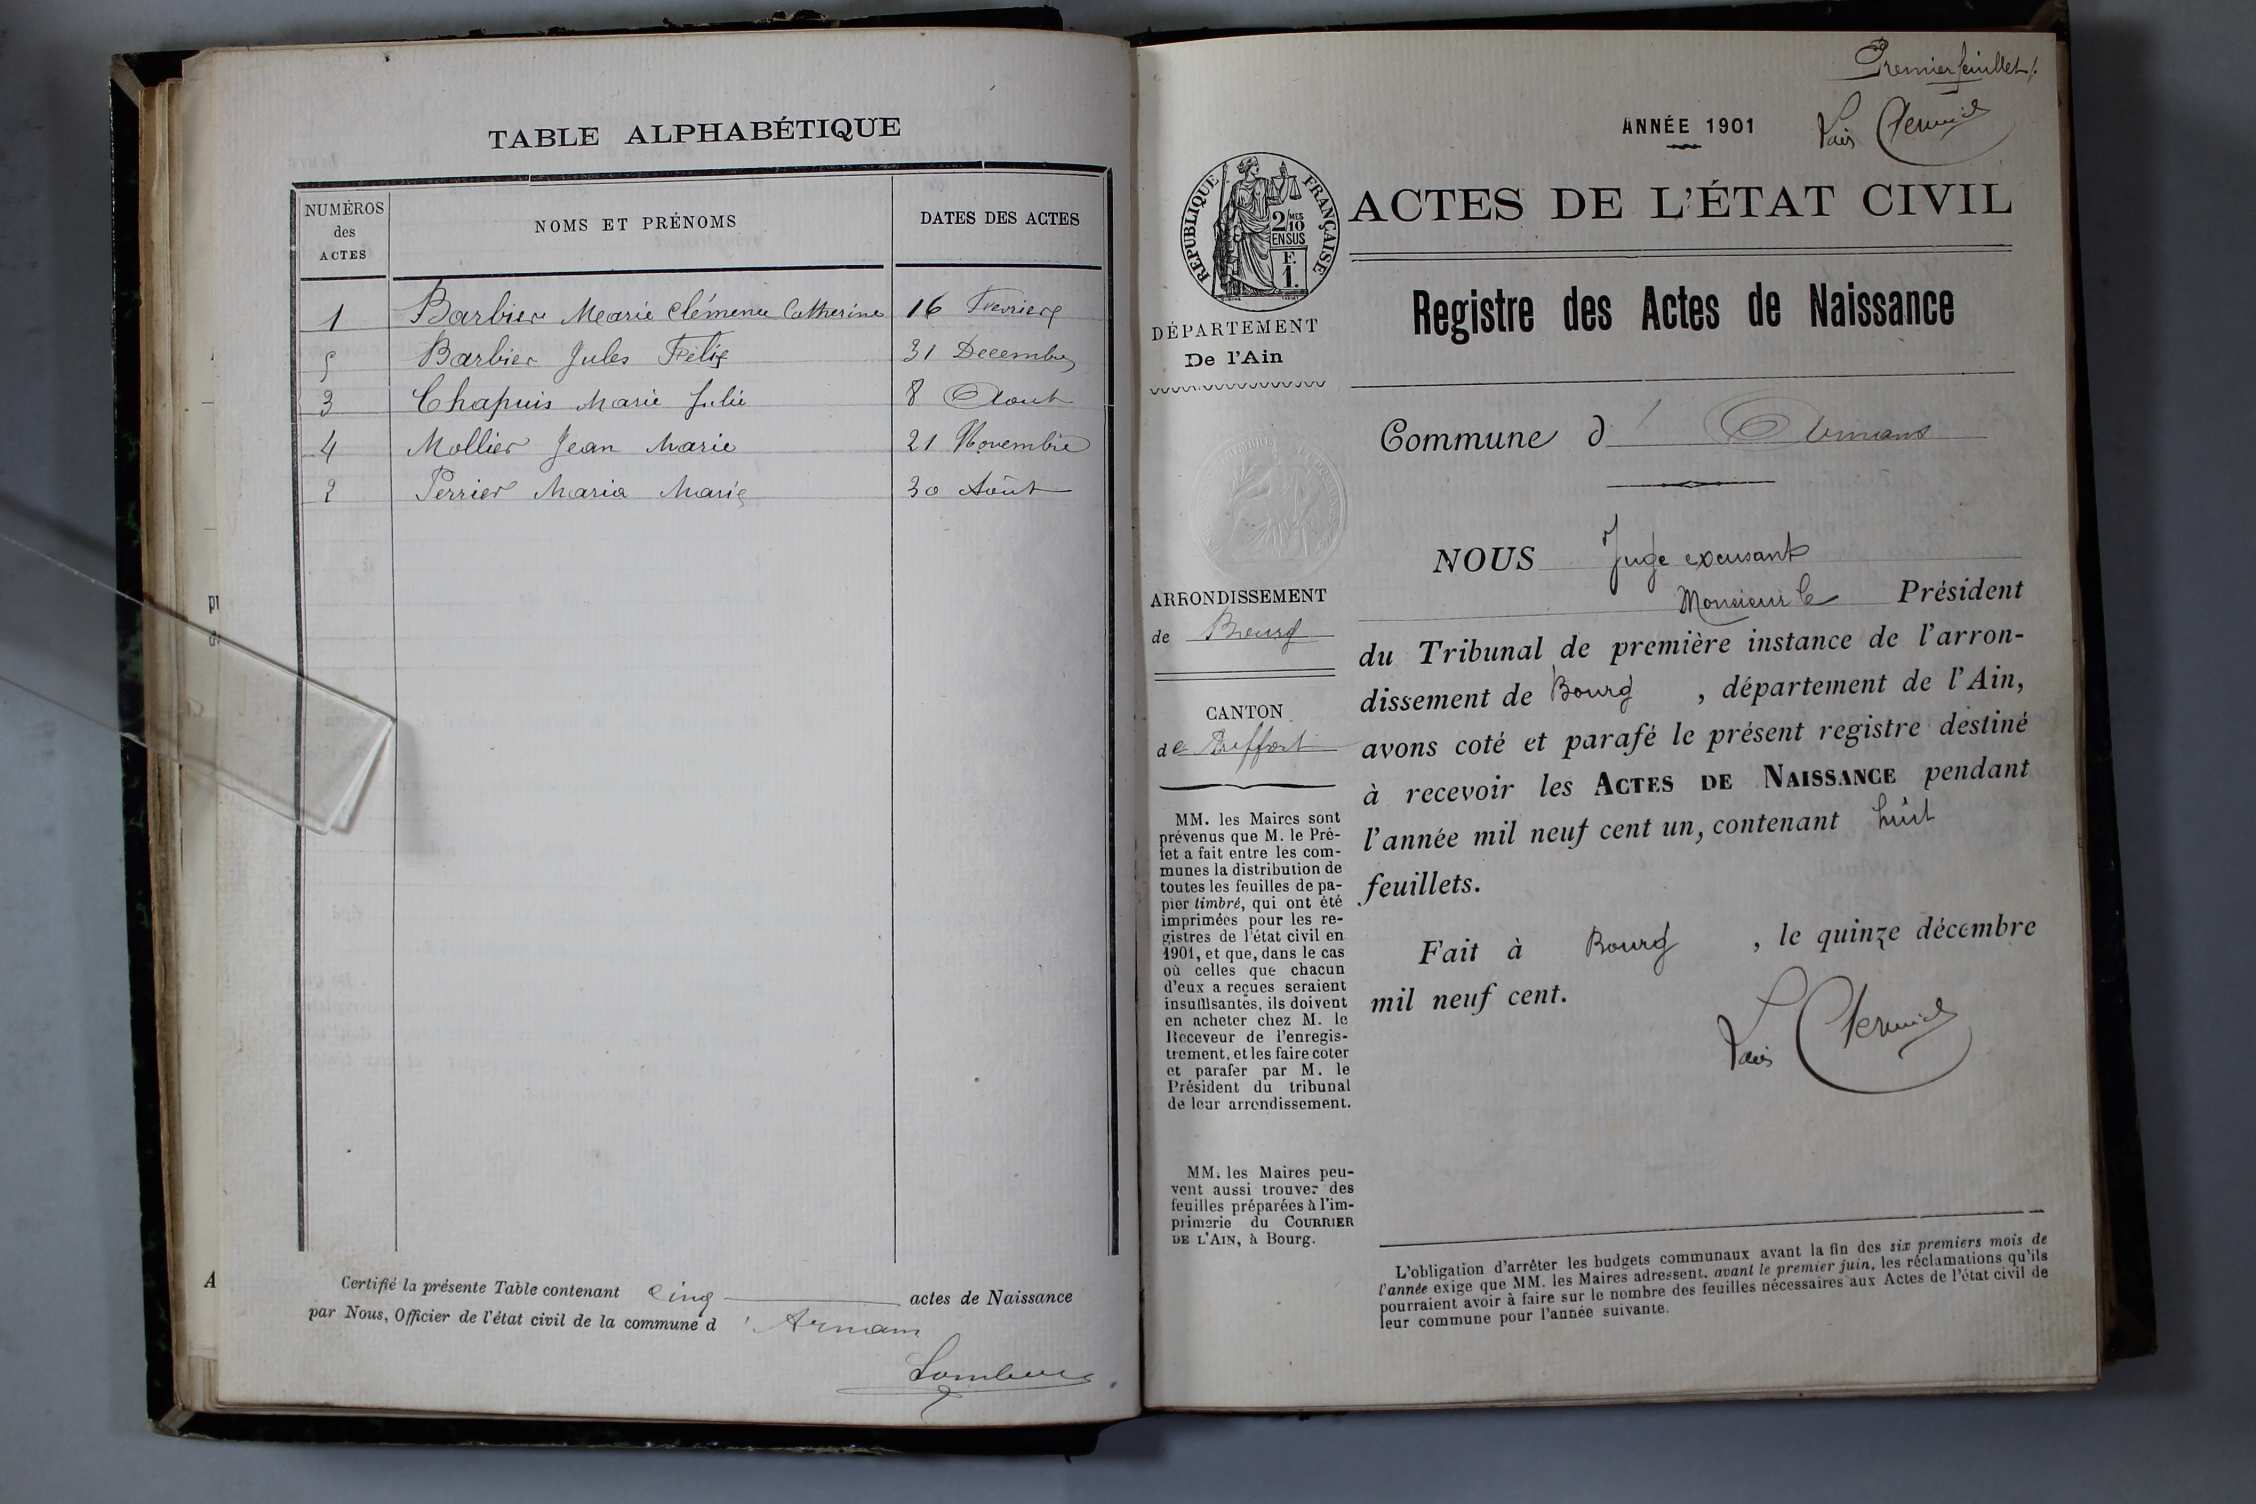 TABLE ALPHABÉTIQUE
NUMÉROS des ACTES
NOMS ET PRÉNOMS
DATES DES ACTES
1 Barbier Marie Clémence Catherine 16 Fevrier
5 Barbier Jules Félix 31 Decembre
3 Chapuis Marie Julie 8 Aout
4 Mollier Jean Marie 21 Novembre
2 Perrier Maria Marie 30 Août
Certifié la présente Table contenant cinq actes de Naissance
par Nous, Officier de l'état civil de la commune d 'Arnans
Premier feuillet
ANNÉE 1901
RÉPUBLIQUE FRANÇAISE
2/10 MES
EN SUS
F.
1.
ACTES DE L'ÉTAT CIVIL
Registre des Actes de Naissance
DÉPARTEMENT
De l'Ain
Commune d' Arnans
NOUS Juge excusant
Monsieur le Président
du Tribunal de première instance de l'arron-
dissement de Bourg , département de l'Ain,
avons coté et parafé le présent registre destiné
à recevoir les ACTES DE NAISSANCE pendant
l'année mil neuf cent un, contenant huit
feuillets.
Fait à Bourg , le quinze décembre
mil neuf cent.
ARRONDISSEMENT
de Bourg
CANTON
de Treffort
MM. les Maires sont
prévenus que M. le Pré-
fet a fait entre les com-
munes la distribution de
toutes les feuilles de pa-
pier timbré, qui ont été
imprimées pour les re-
gistres de l'état civil en
1901, et que, dans le cas
où celles que chacun
d'eux a reçues seraient
insuffisantes, ils doivent
en acheter chez M. le
Receveur de l'enregis-
trement, et les faire coter
et parafer par M. le
Président du tribunal
de leur arrondissement.
MM. les Maires peu-
vent aussi trouver des
feuilles préparées à l'im-
primerie du COURRIER
DE L'AIN, à Bourg.
L'obligation d'arrêter les budgets communaux avant la fin des six premiers mois de
l'année exige que MM. les Maires adressent, avant le premier juin, les réclamations qu'ils
pourraient avoir à faire sur le nombre des feuilles nécessaires aux Actes de l'état civil de
leur commune pour l'année suivante.